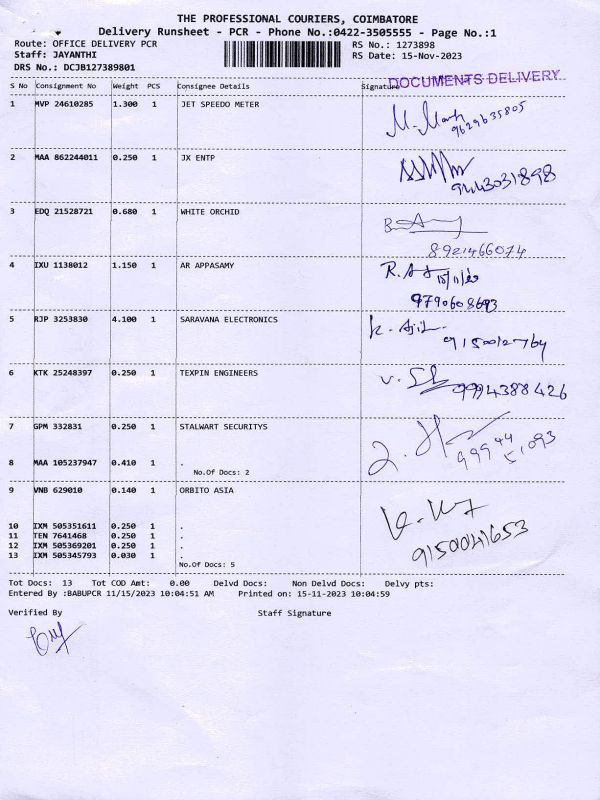 THE PROFESSIONAL COURIERS, COIMBATORE
Delivery Runsheet - PCR - Phone No.:0422-3505555 - Page No.:1
Route: OFFICE DELIVERY PCR RS No.: 1273898
Staff: JAYANTHI RS Date: 15-Nov-2023
DRS No.: DCJB127389801
DOCUMENTS DELIVERY
S No Consignment No Weight PCS Consignee Details Signature
1 MVP 24610285 1.300 1 JET SPEEDO METER
9629635805
2 MAA 862244011 0.250 1 JX ENTP
9443031898
3 EDQ 21528721 0.680 1 WHITE ORCHID
8921466074
4 IXU 1138012 1.150 1 AR APPASAMY
9790608693
5 RJP 3253830 4.100 1 SARAVANA ELECTRONICS
9150012764
6 KTK 25248397 0.250 1 TEXPIN ENGINEERS
9994388426
7 GPM 332831 0.250 1 STALWART SECURITYS
99944
51093
8 MAA 105237947 0.410 1 .
No.Of Docs: 2
9 VNB 629010 0.140 1 ORBITO ASIA
10 IXM 505351611 0.250 1 .
11 TEN 7641468 0.250 1 .
12 IXM 505369201 0.250 1 .
13 IXM 505345793 0.030 1 .
9150041653
No.Of Docs: 5
Tot Docs: 13 Tot COD Amt: 0.00 Delvd Docs: Non Delvd Docs: Delvy pts:
Entered By :BABUPCR 11/15/2023 10:04:51 AM Printed on: 15-11-2023 10:04:59
Verified By Staff Signature